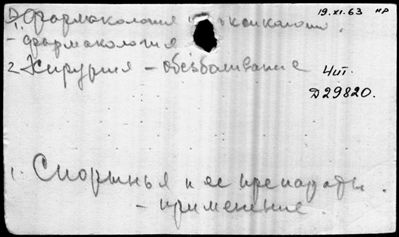 19.XI.63 нр
Фармакология и токсикология.
1.
- фармакология
2. Хирургия - обезболивание
Чит.
Д29820.
1. Спорынья и ее препараты.
- применение.